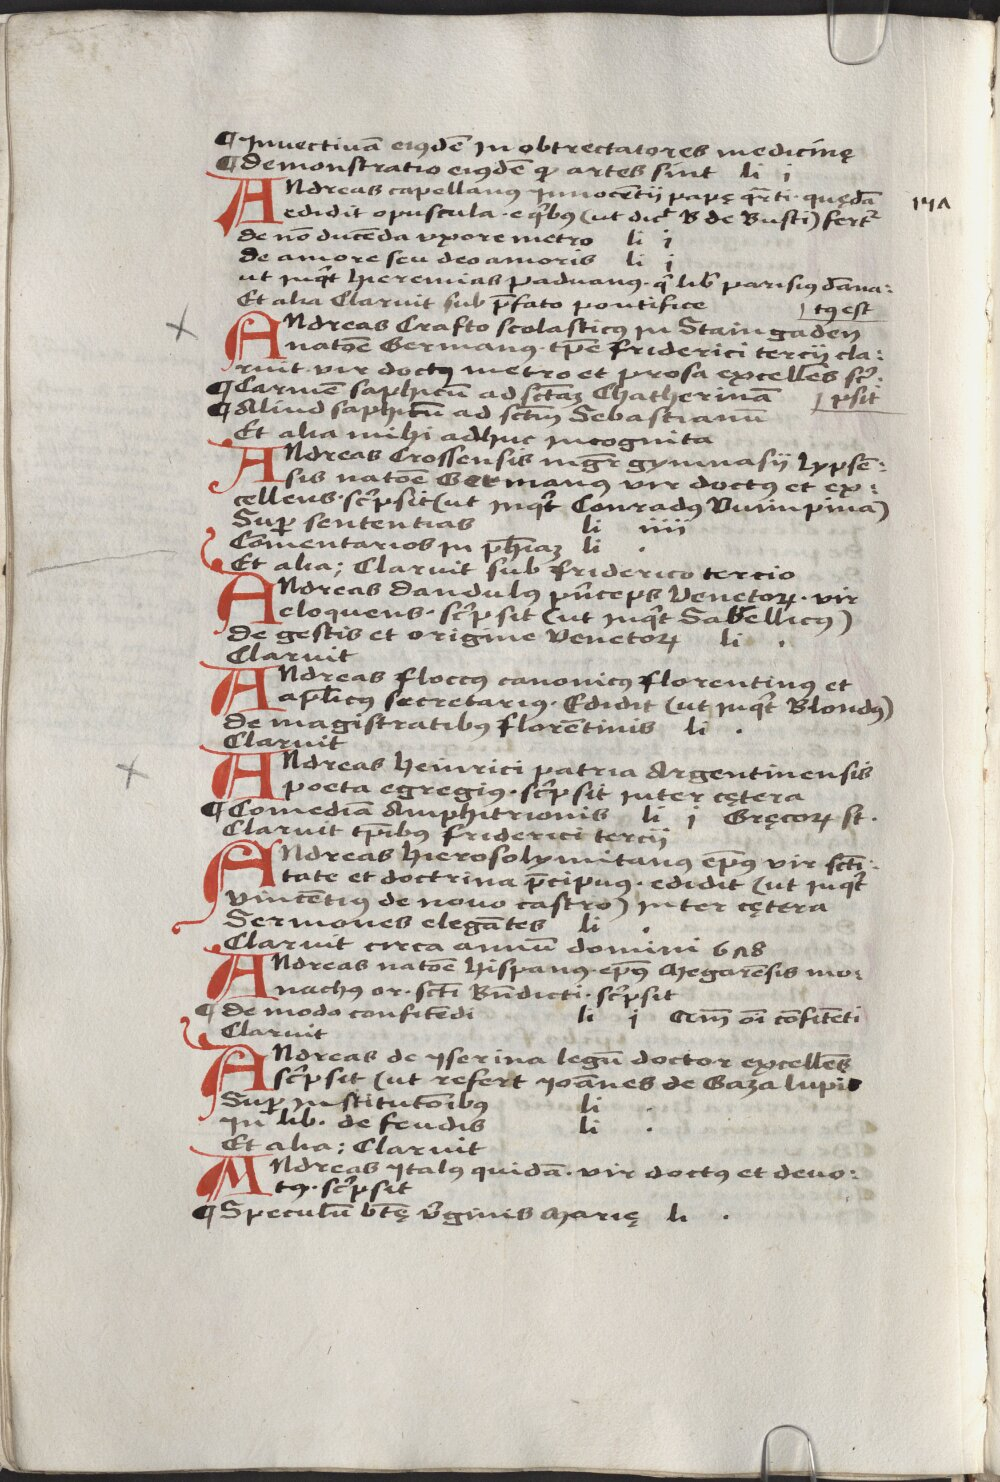 ¶ Invectivā eiusdē in obtrectatores medicinę
¶ demonstratio eiusdē ꝙ artes sint li i
ANdreas capellanꝰ Innocētij papę qͣrti quędā
edidit opuscula · e qͥbꝰ (ut dicͭ B de Busti) fertᷣ
de nō ducēda uxore metro li i
de amore seu deo amoris li i
ut inqͥt Hieremias paduanꝰ · qͥ lib parisiꝰ dāna:
tꝰ est
Et alia Claruit sub p̄fato pontifice
ANdreas Crafto scolasticꝰ in Staingaden
natōe Germanꝰ · tp̄e friderici tercij cla:
ruit · vir doctꝰ metro et prosa excellēs scͥ:
psit
¶ Carmē saphicū ad sctāꝫ Chatherinā
¶ Aliud saphicū ad sctm̄ Sebastianū
Et alia mihi adhuc incognita
ANdreas Crossensis mgr̄ gymnasij lypsē:
sis natōe Germanus vir doctꝰ et ex:
cellens · scͥpsit (ut inqͥt Conradus Vuimpina)
Suꝑ sententias li iiii
Cōmentarios in ph̄iaꝫ li ·
Et alia; Claruit sub friderico tercio
ANdreas dandulꝰ pͥnceps Venetoꝝ · vir
eloquens · scͥpsit (ut inqͥt Sabellicꝰ)
de gestis et origine Venetoꝝ li ·
Claruit
ANdreas floccꝰ canonicꝰ florentinꝰ et
aplicꝰ secretariꝰ · Edidit (ut inqͥt Blondꝰ)
de magistratibꝰ florētinis li ·
Claruit
ANdreas Heinrici patria Argentinensis
poeta egregiꝰ · scͥpsit inter cętera
¶ Comediā Amphitrionis li i Gręcoꝝ st ·
Claruit tp̄ibꝰ friderici tercij
ANdreas Hierosolymitanꝰ ep̄ꝰ vir scti:
tate et doctrina p̄cipuꝰ · edidit (ut inqͥt
Vincētiꝰ de novo castro) inter cętera
Sermones elegātes li ·
Claruit circa annū domini 678
ANdreas natōe Hispanꝰ · ep̄ꝰ Megarēsis mo:
nachꝰ or · scti Bn̄dicti · scͥpsit
¶ de modo confitēdi li i Cum oī cōfitēti
Claruit
ANdreas de yserina legū doctor excellēs
scͥpsit (ut refert Ioānes de Gaza lupis
Suꝑ institutōibꝰ li ·
In lib · de feudis li ·
Et alia; Claruit
ANdreas Italꝰ quidā · vir doctꝰ et devo:
tꝰ · scͥpsit
¶ Speculū btę vͥginis Marię li ·